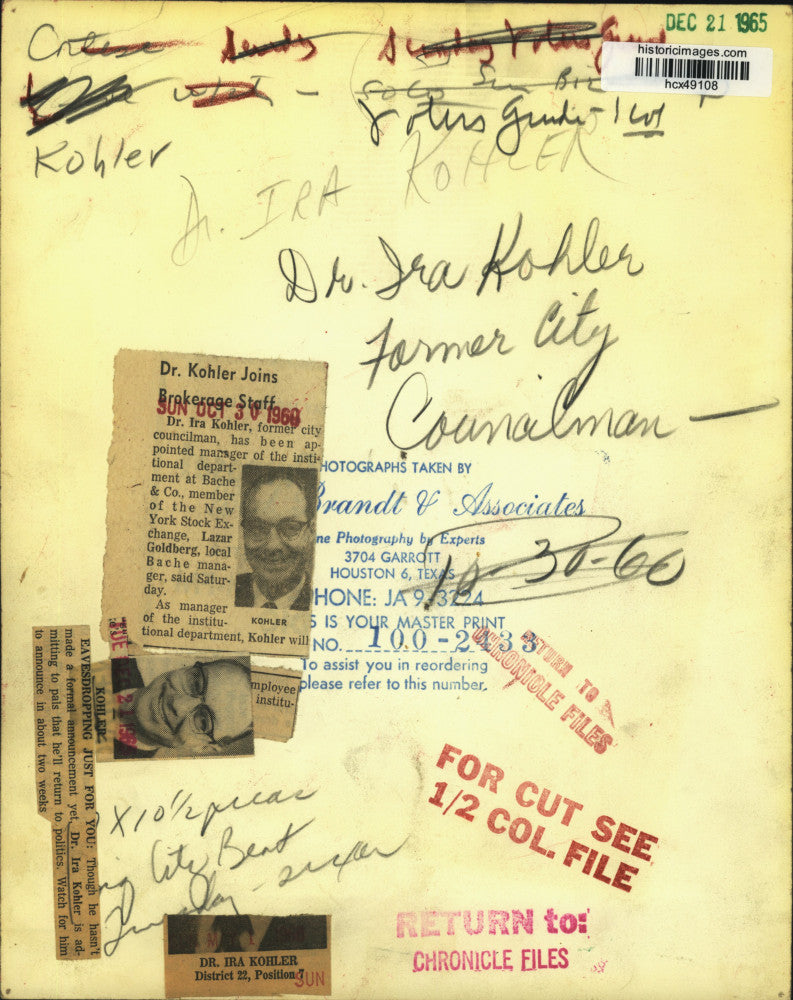 DEC 21 1965
historicimages.com
hcx49108
Sunday Voters Guide
Voters Guide - 1 col
Kohler
Dr. IRA KOHLER
Dr. Ira Kohler
Former City
Councilman —
Dr. Kohler Joins
Brokerage Staff
SUN OCT 30 1960
Dr. Ira Kohler, former city
councilman, has been ap-
pointed manager of the insti-
tional depart-
ment at Bache
& Co., member
of the New
York Stock Ex-
change, Lazar
Goldberg, local
Bache mana-
ger, said Satur-
day.
As manager
of the institu-
tional department, Kohler will
KOHLER
mployee
institu-
HOTOGRAPHS TAKEN BY
Brandt & Associates
ne Photography by Experts
3704 GARROTT
HOUSTON 6, TEXAS
PHONE: JA 9-3224
S IS YOUR MASTER PRINT
NO. 100-2433
To assist you in reordering
please refer to this number.
10-30-60
RETURN TO
CHRONICLE FILES
FOR CUT SEE
1/2 COL. FILE
RETURN to:
CHRONICLE FILES
KOHLER
EAVESDROPPING JUST FOR YOU: Though he hasn't
made a formal announcement yet, Dr. Ira Kohler is ad-
mitting to pals that he'll return to politics. Watch for him
to announce in about two weeks.
X 10½ picas
City Beat
DR. IRA KOHLER
District 22, Position 7
SUN